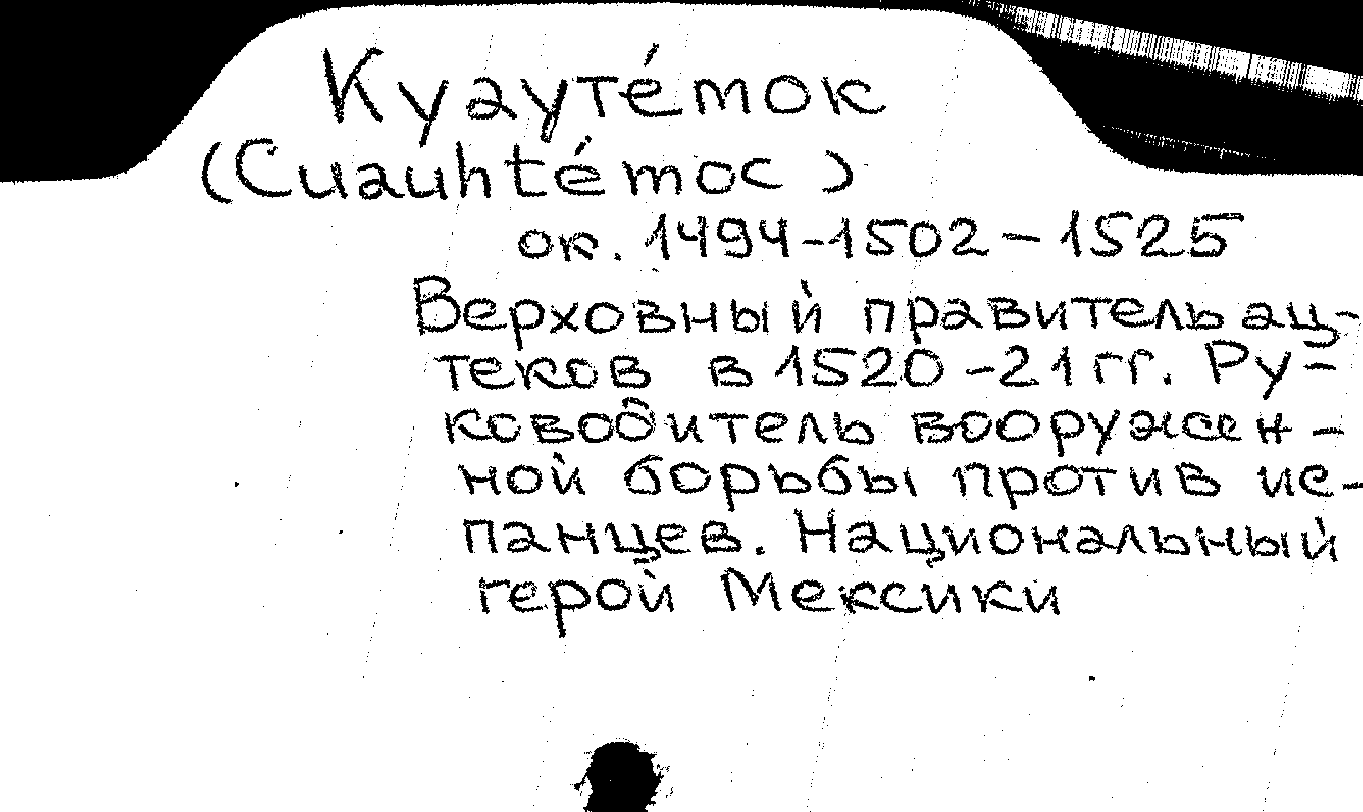 Куаутéмок
(Cuauhtémoc)
ок. 1494-1502 – 1525
Верховный правитель ац-
теков в 1520-21 гг. Ру-
ководитель вооружен-
ной борьбы против ис-
панцев. Национальный
герой Мексики